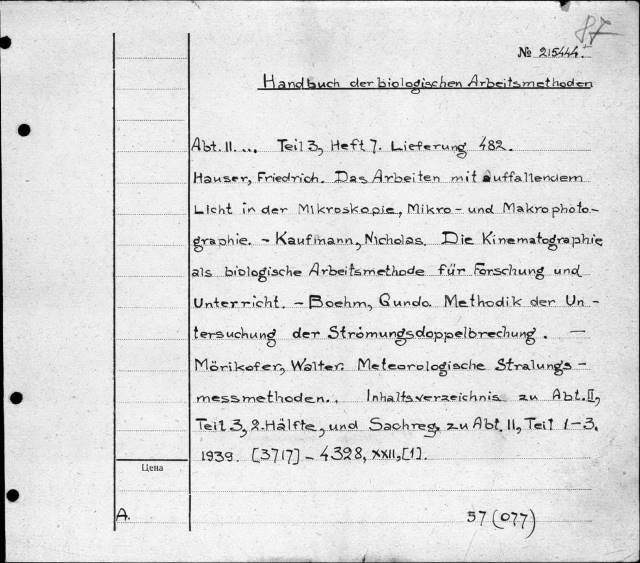 87
№ 215444.
Handbuch der biologischen Arbeitsmethoden
Abt. II. ... Teil 3, Heft 7. Lieferung 482.
Hauser, Friedrich. Das Arbeiten mit auffallendem
Licht in der Mikroskopie, Mikro- und Makrophoto-
graphie. - Kaufmann, Nicholas. Die Kinematographie
als biologische Arbeitsmethode für Forschung und
Unterricht. - Boehm, Gundo. Methodik der Un-
tersuchung der Strömungsdoppelbrechung. -
Mörikofer, Walter. Meteorologische Stralungs-
messmethoden.. Inhaltsverzeichnis zu Abt. II,
Teil 3, 2. Hälfte, und Sachreg. zu Abt. II, Teil 1-3.
1939. [3717] - 4328, XXII, [1].
Цена
A.
57 (077)